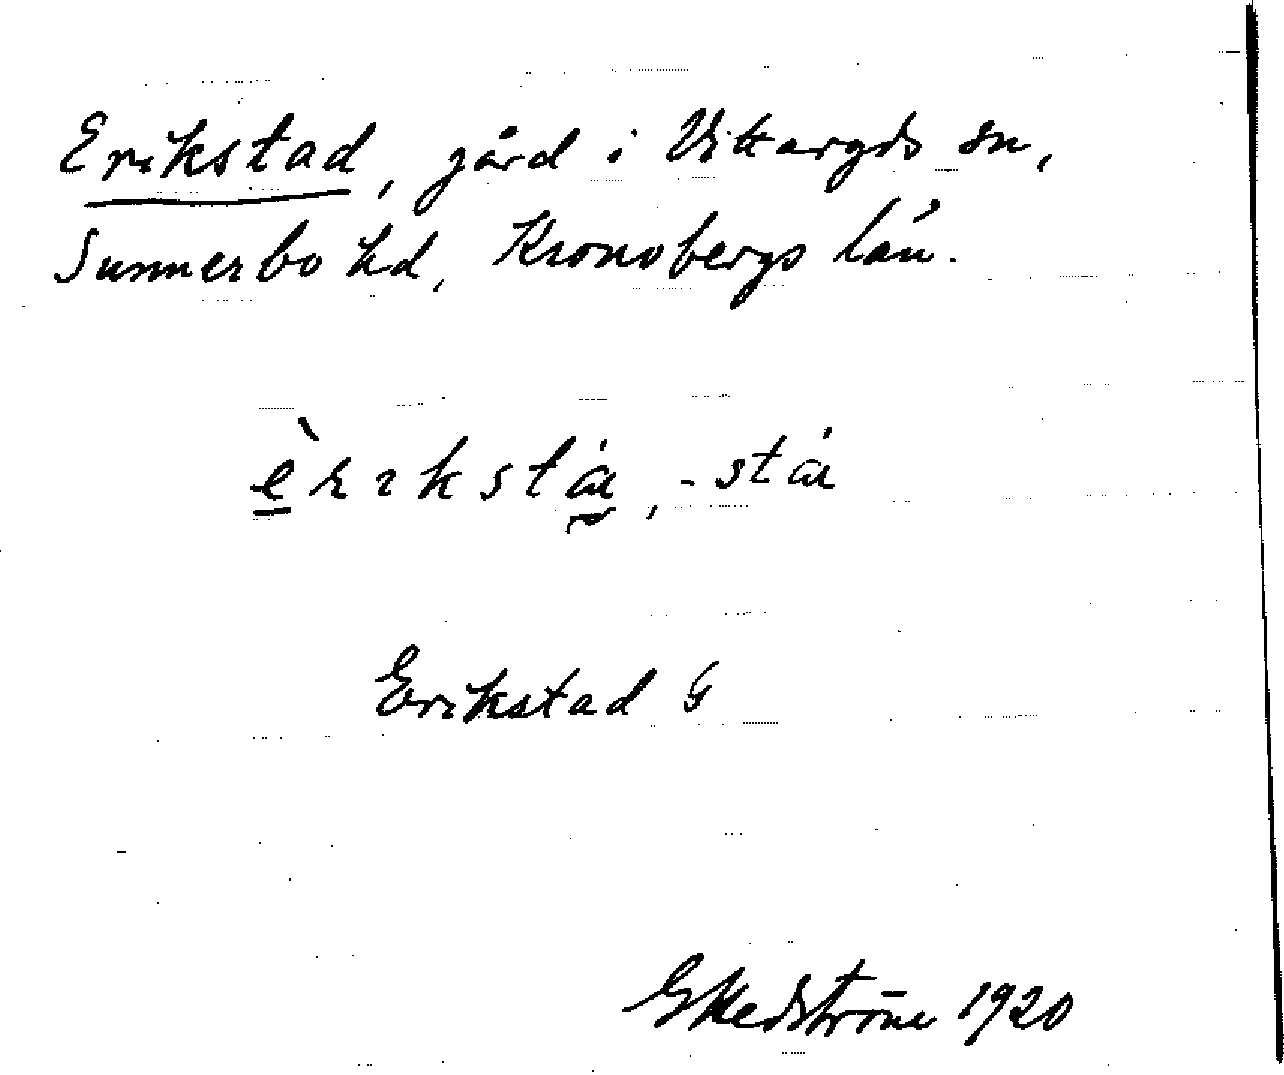 Erikstad, gård i Vittaryds sn,
Sunnerbo hd, Kronobergs län.
Erikstad G
Hedström 1920